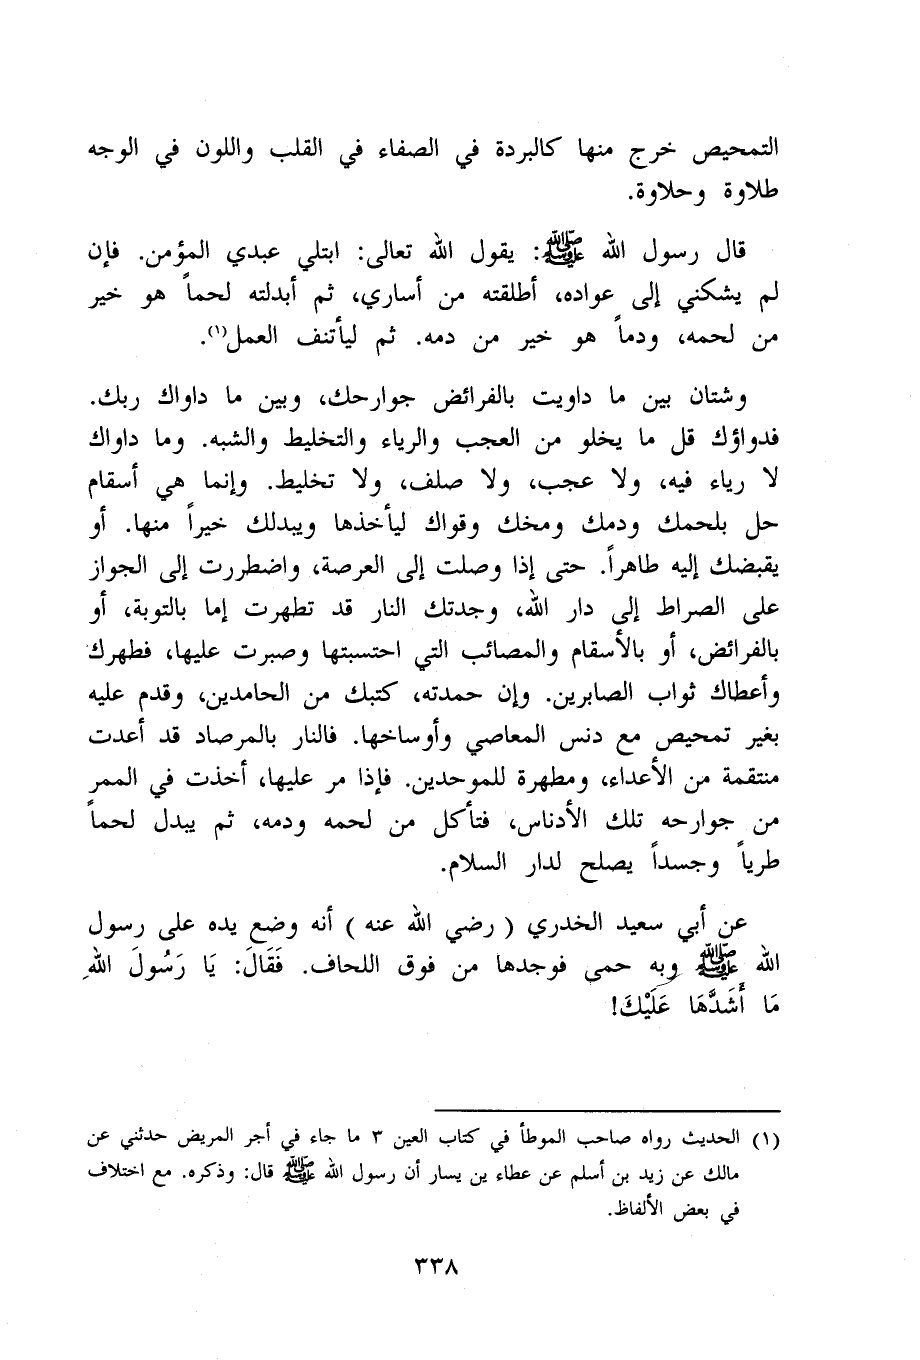 التمحيص خرج منها كالبردة في الصفاء في القلب واللون في الوجه
طلاوة وحلاوة.
قال رسول الله ﷺ: يقول الله تعالى: ابتلي عبدي المؤمن. فإن
لم يشكني إلى عواده، أطلقته من أساري، ثم أبدلته لحماً هو خير
من لحمه، ودماً هو خير من دمه. ثم ليأتنف العمل(١).
وشتان بين ما داويت بالفرائض جوارحك، وبين ما داواك ربك.
فدواؤك قل ما يخلو من العجب والرياء والتخليط والشبه. وما داواك
لا رياء فيه، ولا عجب، ولا صلف، ولا تخليط. وإنما هي أسقام
حل بلحمك ودمك ومخك وقواك ليأخذها ويبدلك خيراً منها. أو
يقبضك إليه طاهراً. حتى إذا وصلت إلى العرصة، واضطررت إلى الجواز
على الصراط إلى دار الله، وجدتك النار قد تطهرت إما بالتوبة، أو
بالفرائض، أو بالأسقام والمصائب التي احتسبتها وصبرت عليها، فطهرك
وأعطاك ثواب الصابرين. وإن حمدته، كتبك من الحامدين، وقدم عليه
بغير تمحيص مع دنس المعاصي وأوساخها. فالنار بالمرصاد قد أعدت
منتقمة من الأعداء، ومطهرة للموحدين. فإذا مر عليها، أخذت في الممر
من جوارحه تلك الأدناس، فتأكل من لحمه ودمه، ثم يبدل لحماً
طرياً وجسداً يصلح لدار السلام.
عن أبي سعيد الخدري ( رضي الله عنه ) أنه وضع يده على رسول
الله ﷺ وبه حمى فوجدها من فوق اللحاف. فَقَالَ: يَا رَسُولَ اللهِ
مَا أَشَدَّهَا عَلَيْكَ!
(١) الحديث رواه صاحب الموطأ في كتاب العين ٣ ما جاء في أجر المريض حدثني عن
مالك عن زيد بن أسلم عن عطاء بن يسار أن رسول الله ﷺ قال: وذكره. مع اختلاف
في بعض الألفاظ.
٣٣٨